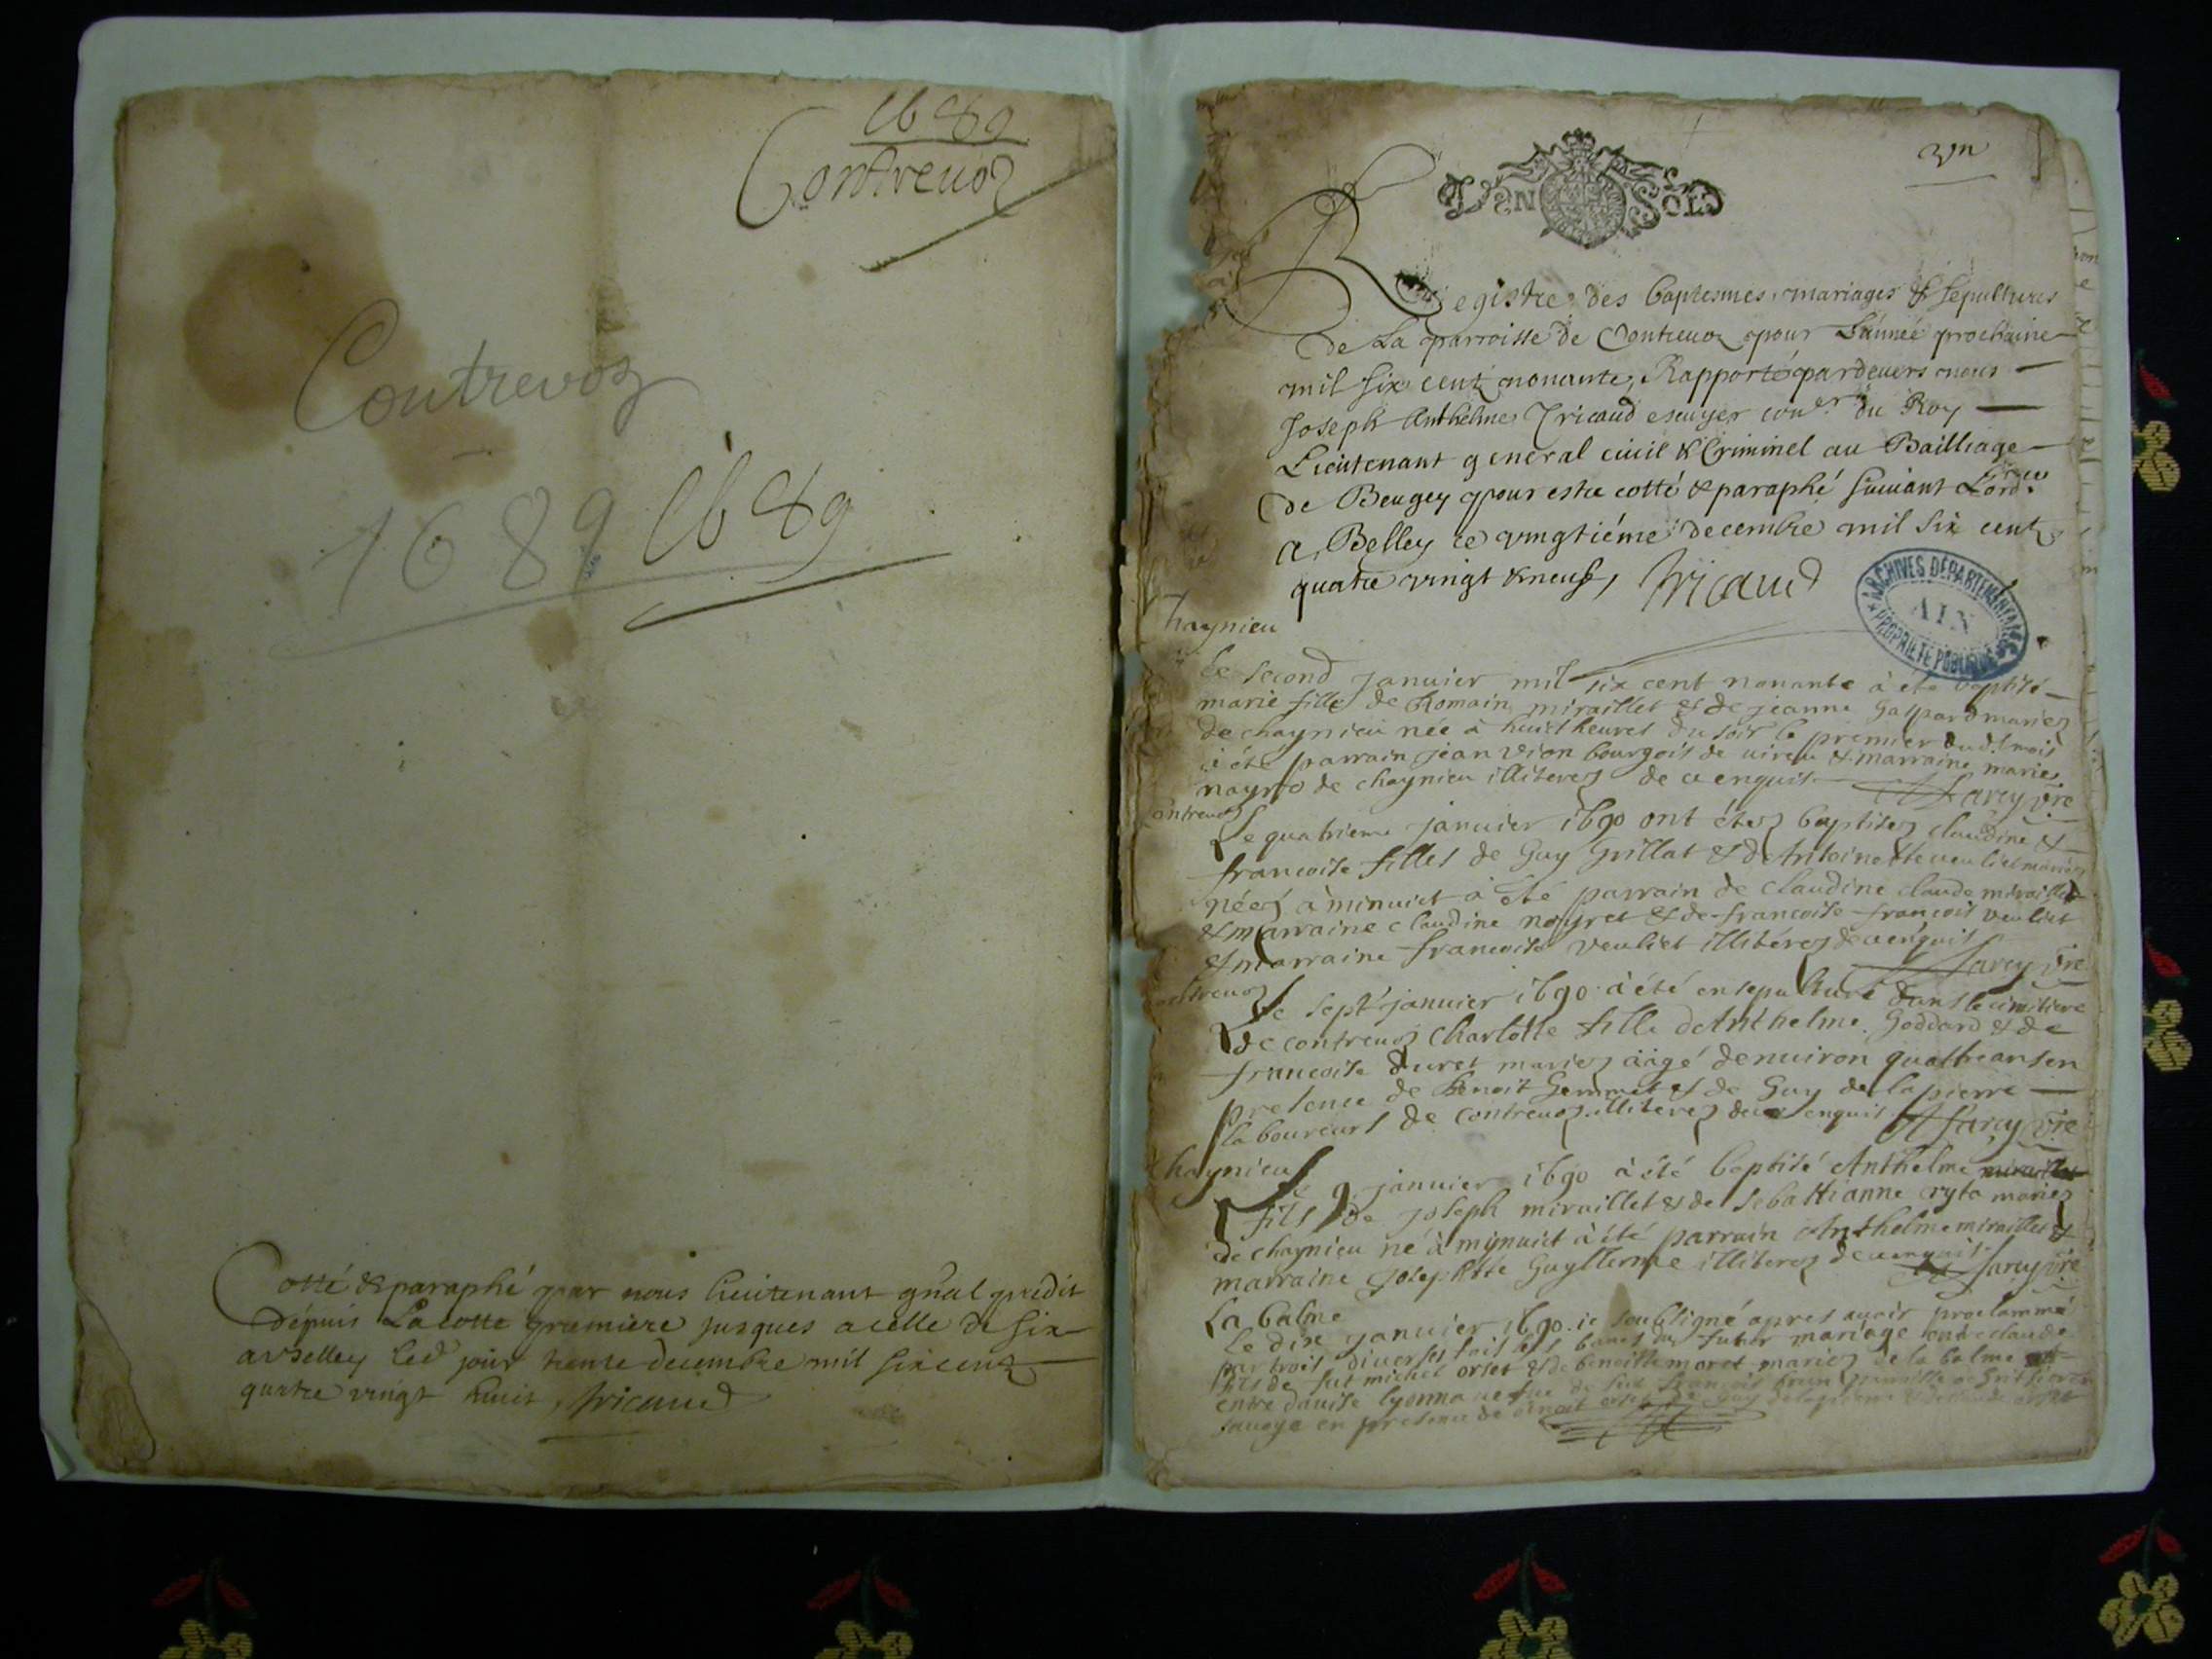 1689
Contrevoz
Contrevoz
1689 1689
Cotté & paraphé par nous Lieutenant gñal predit
depuis La cotte premiere jusques a celle de six
a Belley led jour trente decembre mil six centz
quatre vingt huit, Tricaud
Vn
DEN SOLS
Registre des baptesmes mariages & sepultures
de La parroisse de Contrevoz pour L'année prochaine
mil six centz nonante, Rapporté pardevers nous
Joseph Anthelme Tricaud escuyer coner du Roy
Lieutenant general civil & Criminel au Bailliage
de Beugey pour estre cotté & paraphé suivant L'ordce
a Belley ce vingtiéme decembre mil six centz
quatre vingt & neuf, Tricaud
ARCHIVES DÉPARTEMENTALES
AIN
PROPRIÉTÉ PUBLIQUE
Chaynieu
Le second janvier mil six cent nonante à été baptisé
marie fille de Romain miraillet & de jeanne Gaspard mariez
de chaynieu née à huict heures du soir le premier dud. mois
à été parrain jean vion bourgois de virieu & marraine marie
de chaynieu illiterez de ce enquis Sarcy pre
Contrevoz
Le quatrieme janvier 1690 ont étez baptisez claudine &
francoise filles de Guy Grillat & d'Antoinette veuliet mariez
néez à minuict à été parrain de claudine claude miraillet
& marraine claudine noyret & de francoise francois veuliet
& marraine francoise veuliet illitérez de ce enquis Sarcy pre
Contrevoz
Le sept janvier 1690 à été ensepulturé dans le cimitiere
de contrevoz Charlotte fille d'Anthelme Goddard & de
francoise duret mariez aagé denviron quattre ans en
presence de Benoit Gemmet & de Guy de lapierre
laboureurs de contrevoz illiterez de ce enquis Sarcy pre
Chaynieu
Le 9 janvier 1690 à été baptisé Anthelme miraillet
fils de joseph miraillet & de sebastianne ryta mariez
de chaynieu né à mynuict à été parrain Anthelme miraillet &
marraine josephtte Guyllerme illiterez de ce enquis Sarcy pre
La balme
Le dix janvier 1690 ie soubsigné apres avoir proclammé
par trois diverses fois les bancs du futur mariage entre claude
fils de fut michel orset & de benoitte moret mariez de la balme
entre
savoye en presence de benoit orset de Guy delapierre